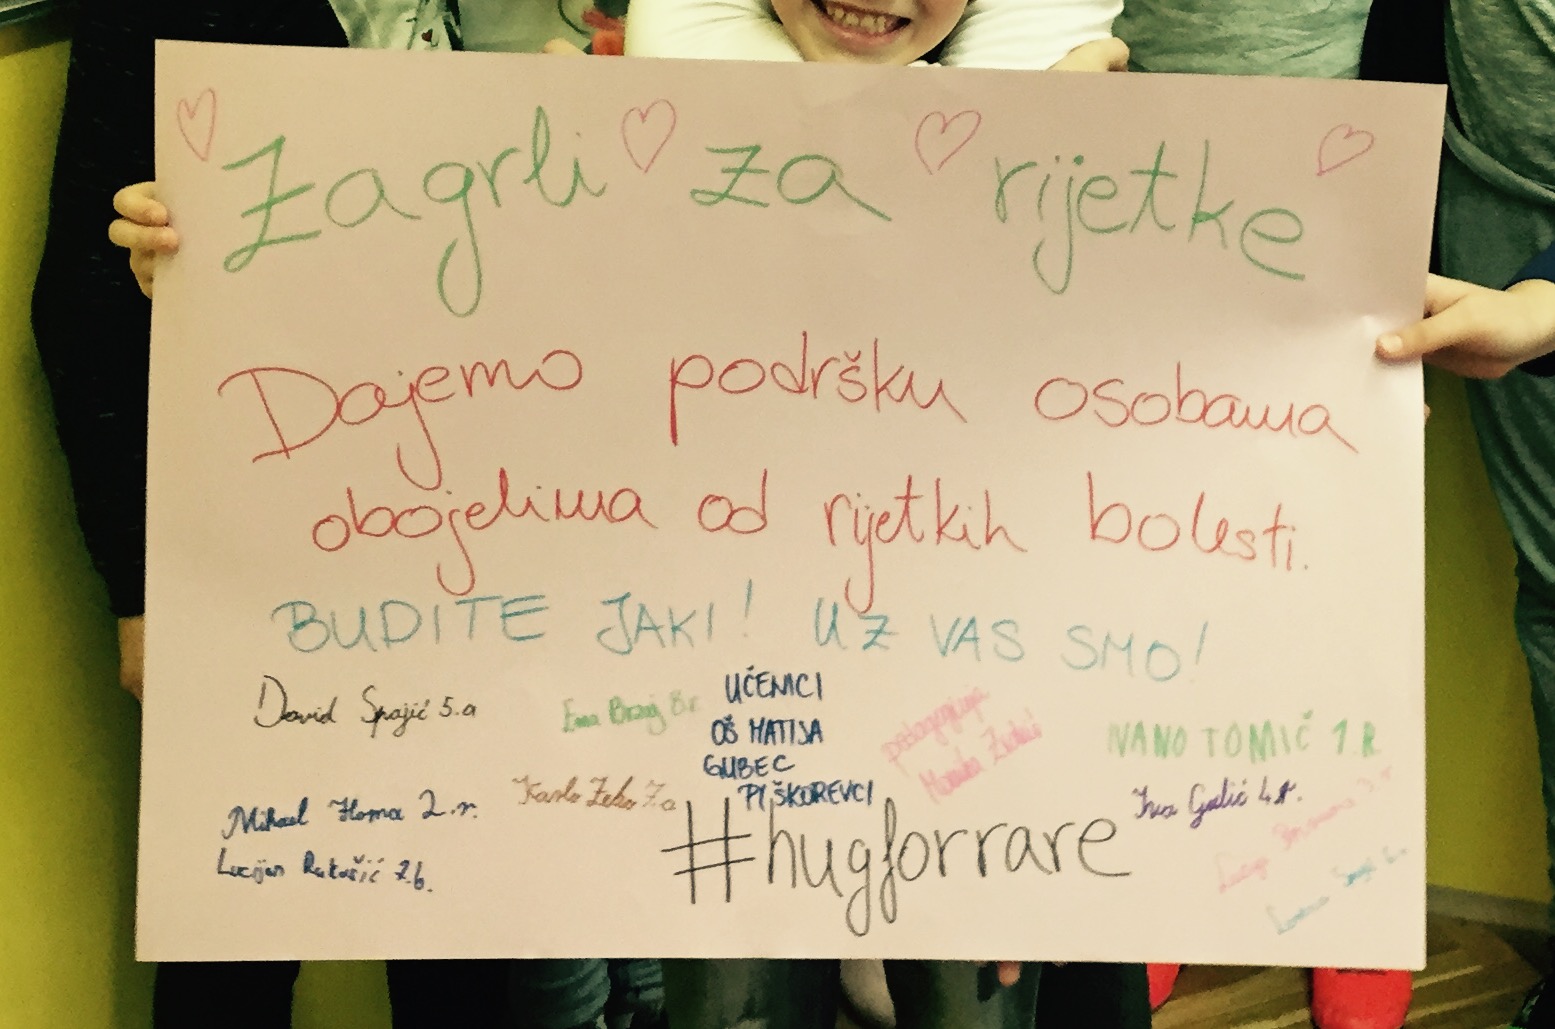 Zagrli za rijetke
Dajemo podršku osobama
obojelima od rijetkih bolesti.
BUDITE JAKI! UZ VAS SMO!
David Spajić 5.a
Ema 8.r
UČENICI
OŠ MATIJA
GUBEC
PIŠKOREVCI
pedagoginja
NANO TOMIĆ 1.R.
Mihael Homa 2.r.
Karlo Zeko 7.a
Iva Galić 4.r.
Lucijan 7.b.
#hugforrare